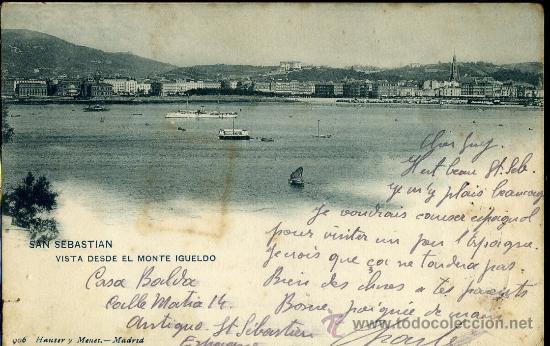 Cher Guy.
Il est beau St. Seb.
Je m'y plais beaucoup
Je voudrais causer espagnol
pour visiter un peu l'Espagne.
Je crois que ça ne tardera pas.
Bien des choses à tes parents
Bonne poignée de main
SAN SEBASTIAN
VISTA DESDE EL MONTE IGUELDO
Casa Balda
Calle Matia 14
Antiguo. St Sébastien
Espagne
906 Hauser y Menet.-Madrid
todocoleccion.net